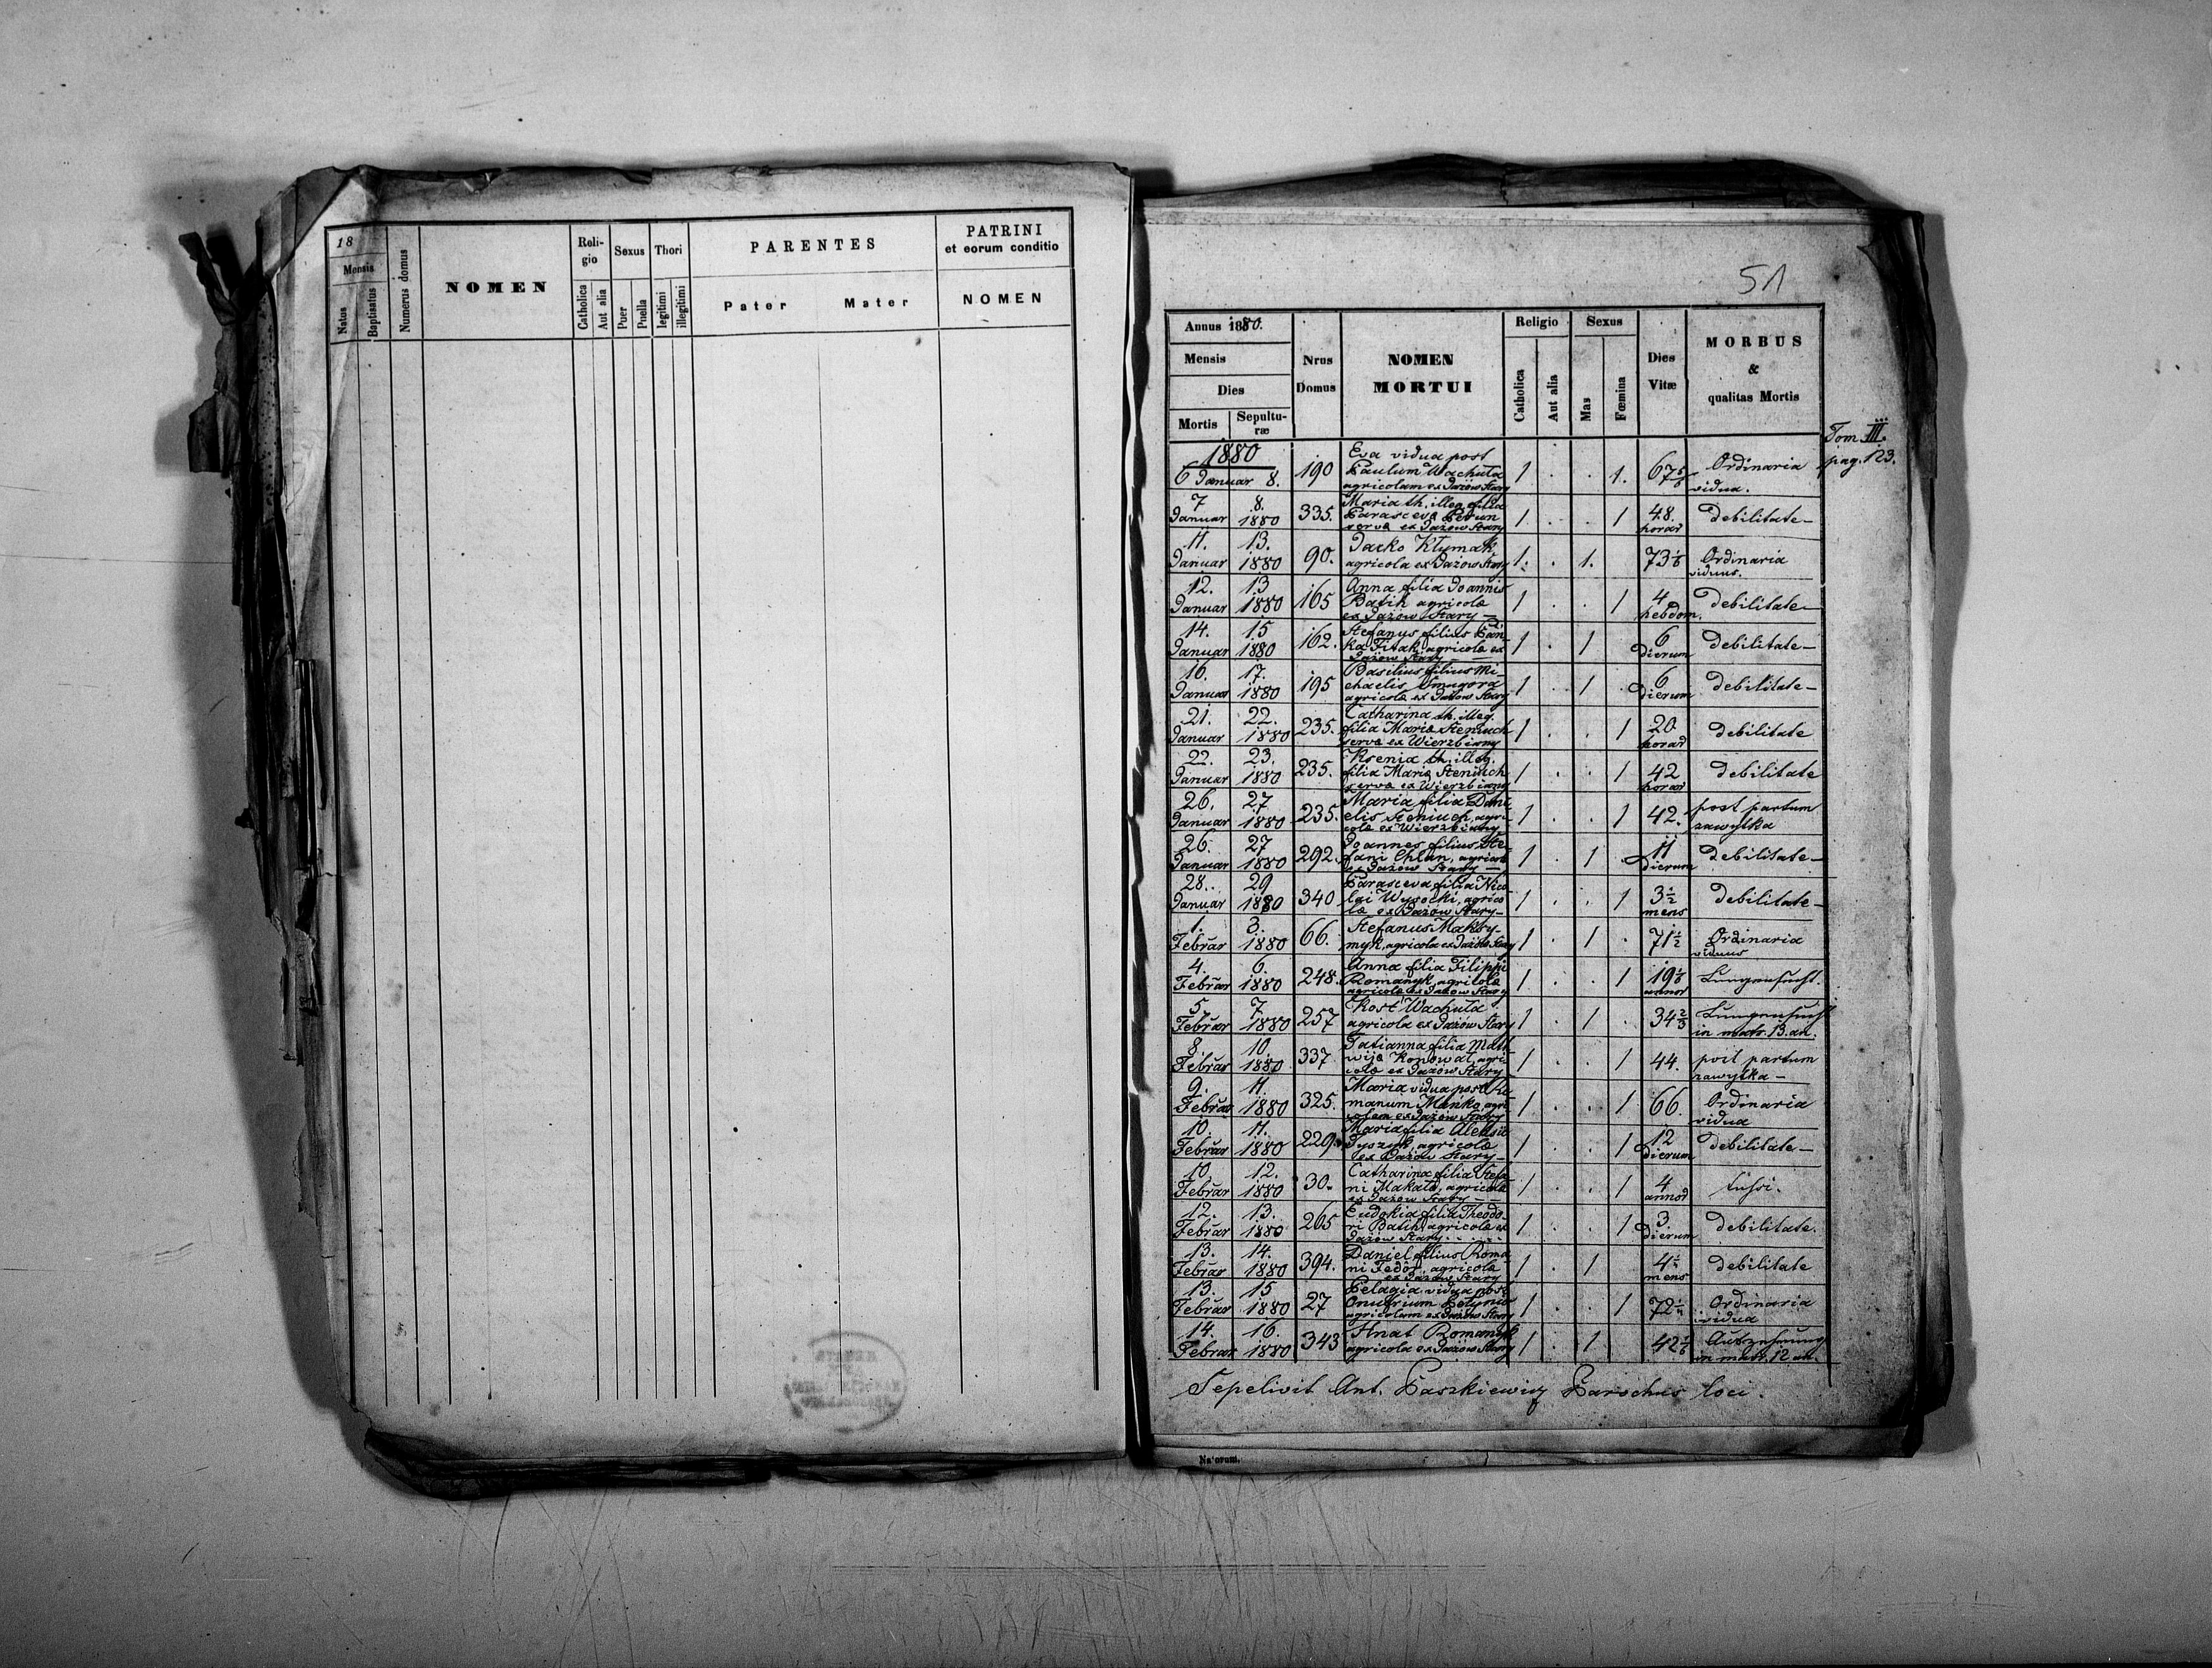 18
Mensis
Natus
Baptisatus
Numerus domus
NOMEN
Reli-
gio
Catholica
Aut alia
Sexus
Puer
Puella
Thori
legitimi
illegitimi
PARENTES
Pater Mater
PATRINI
et eorum conditio
NOMEN
51
Annus 1880.
Mensis
Dies
Mortis
Sepultu-
ræ
Nrus
Domus
NOMEN
MORTUI
Religio
Catholica
Aut alia
Sexus
Mas
Fœmina
Dies
Vitæ
MORBUS
&
qualitas Mortis
Tom III.
pag. 123.
1880
6 Januar 8. 190
Eva vidua post
Paulum Wachuła
agricolam ex Jażów Stary
1 . . 1. 67
Ordinaria
vidua.
7 8.
Januar 1880 335.
Maria th. illeg. filia
Parasceva
serva ex Jażów Stary
1 . . 1 48.
horar
debilitate
11. 13.
Januar 1880 90.
Jacko Kłymak
agricola ex Jażow Stary
1. . 1. 73
Ordinaria
viduus.
12. 13
Januar 1880 165
Anna filia Joannis
Batih agricolæ
ex Jażow Stary
1 . . 1 4
hebdom.
debilitate
14. 15
Januar 1880 162.
Stefanus filius
agricolæ ex
Jażow Stary
1 . 1 6
Dierum
debilitate
16. 17.
Januar 1880 195
Basilius filius Mi-
chaelis
agricolæ ex Jażow Stary
1 . 1 . 6
dierum
debilitate
21. 22.
Januar 1880 235.
Catharina th. illeg.
filia Mariæ Steniuch
serva ex Wierzbiany
1 . . 1 20
horar
debilitate
22. 23.
Januar 1880 235.
Ksenia th. illeg.
filia Mariæ Steniuch
serva ex Wierzbiany
1 . . 1 42
horar
debilitate
26. 27
Januar 1880 235.
Maria filia Dani
elis Steniuch, agri-
colæ ex Wierzbiany
1 . . 1 42.
post partum
zawyłka
26. 27
Januar 1880 292.
Joannes filius Ste-
fani Chlan, agricolæ
ex Jażow Stary
1 . 1 . 11
dierum
debilitate
28. 29
Januar 1880 340
Parasceva filia Nico
lai Wysocki, agrico
læ ex Jażow Stary
1 . . 1 3½
mens
debilitate
1. 3.
Februar 1880 66.
Stefanus Maksy-
myk, agricola ex Jażów Stary
1 . 1 . 71½
Ordinaria
viduus
4. 6.
Februar 1880 248.
Anna filia Filippi
Romanyk, agricolæ
agricolæ ex Jażow Stary
1 . . 1 19
annor
Lungensucht.
5. 7
Februar 1880 257
Kost Wachuła
agricola ex Jażów Stary
1 . 1 . 34⅔
Lungensucht
in matr. 13. an.
8. 10.
Februar 1880 337
Tatianna filia Mat
wija Konował, agri-
colæ ex Jażow Stary
1 . . 1 44.
post partum
zawyłka
9. 11.
Februar 1880 325.
Maria vidua post Ro-
manum Mańko, agri
colam ex Jażow Stary
1 . . 1 66.
Ordinaria
vidua
10. 11.
Februar 1880 229.
Maria filia Aleksii
agricolæ
ex Jażow Stary
1 . . 1 12
Dierum
debilitate
10. 12.
Februar 1880 30.
Catharina filia Stefa
ni Makała, agricolæ
ex Jażow Stary
1 . . 1 4
annor
tussi.
12. 13.
Februar 1880 265
Eudokia filia Theodo-
ri Batih, agricolæ ex
Jażow Stary
1 . . 1 3.
Dierum
debilitate.
13. 14.
Februar 1880 394.
Daniel filius Roma
ni Fedór, agricolæ
ex Jażow Stary
1 . 1 4½
mens
debilitate
13. 15
Februar 1880 27
Pelagia vidua post
Onufrium
agricolam ex Jażow Stary
1 . . 1 72
Ordinaria
vidua
14. 16.
Februar 1880 343
Hnat Romanyk
agricola ex Jażow Stary
1 . 1 42
Auszehrung
in matr. 12 an.
Sepelivit Ant. Paszkiewicz Parochus loci.
Na'orum.